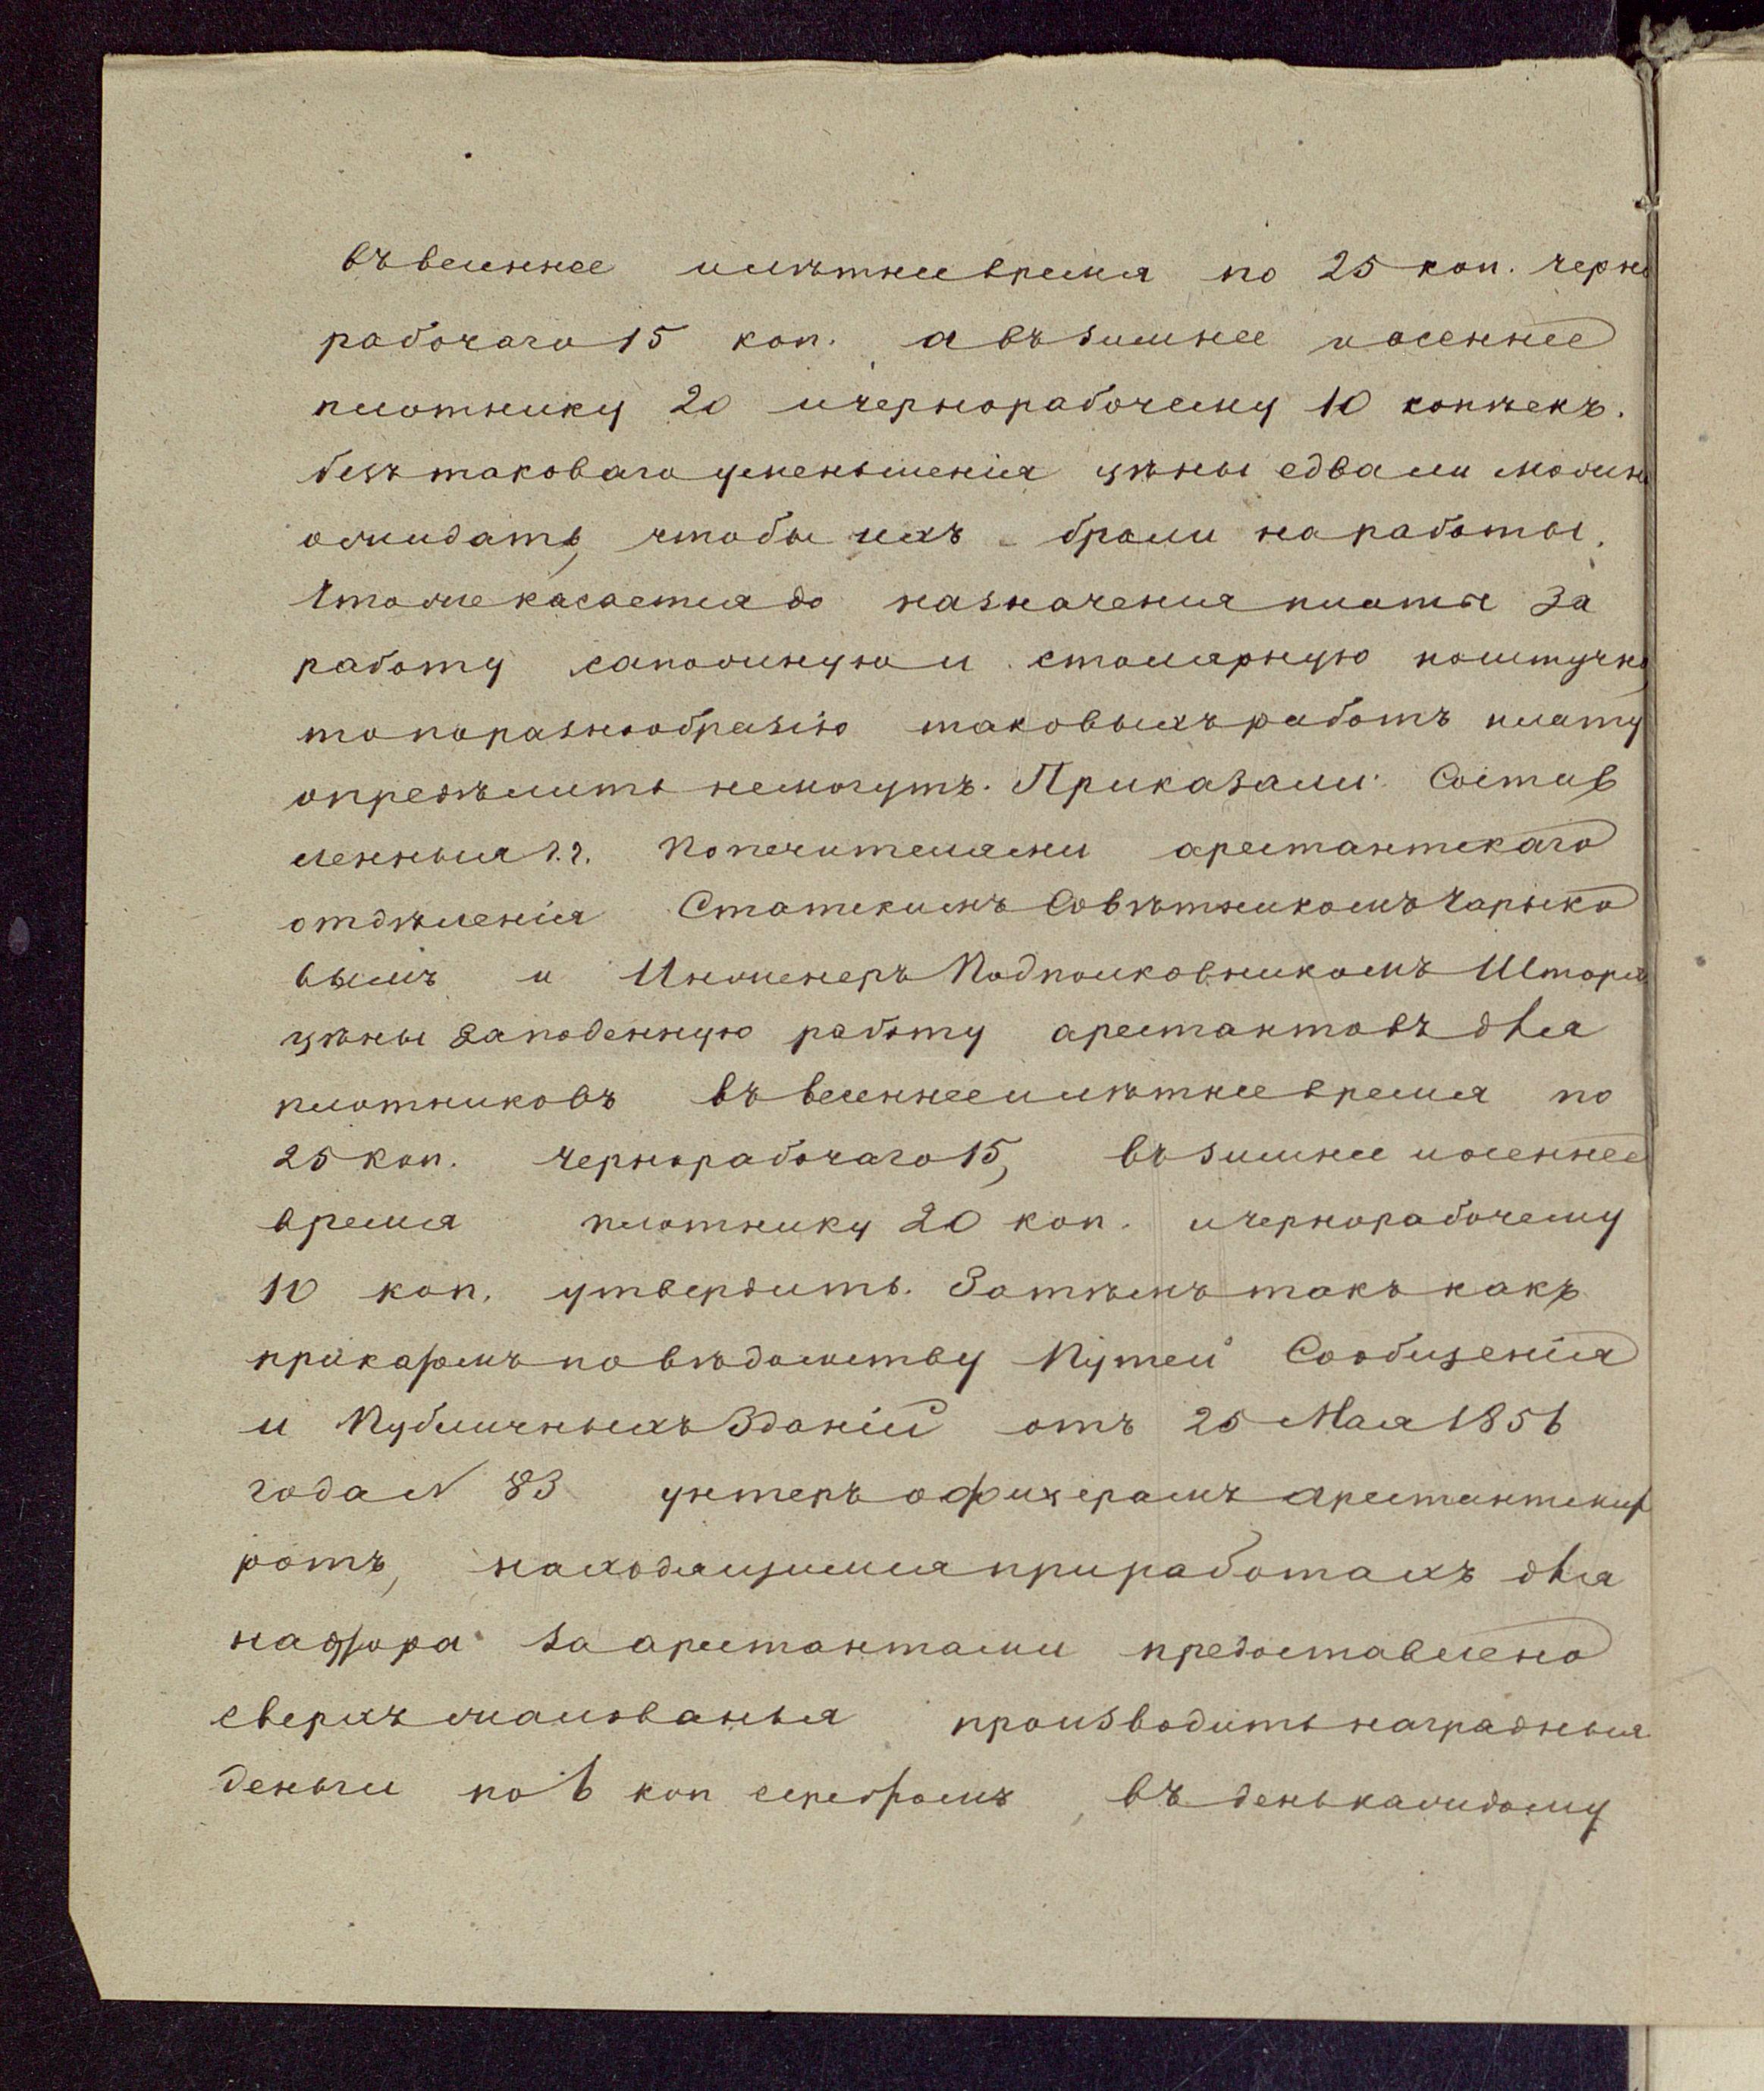 въ весеннее и лѣтнее время по 25 коп. черно
рабочаго 15 коп. а въ зимнее и осеннее
плотнику 20 и чернорабочему 10 копѣекъ.
безъ таковаго уменьшенія цѣны едвали можно
ожидать, чтобы ихъ брали на работы.
Что же касается до назначенія платы за
работу сапожную и столярную поштучно,
то по разнообразію таковыхъ работъ плату
опредѣлить не могутъ. Приказали: Состав
ленныя г.г. Попечителями арестантскаго
отдѣленія Статскимъ Совѣтникомъ Чарыко
вымъ и Инженеръ Подполковникомъ
цѣны за поденную работу арестантовъ для
плотниковъ въ весеннее и лѣтнее время по
25 коп. чернорабочаго 15, въ зимнее и осеннее
время плотнику 20 коп. и чернорабочему
10 коп. утвердить. Затѣмъ такъ какъ
приказомъ по вѣдомству Путей Сообщенія
и Публичныхъ Зданій отъ 25 Мая 1856
года № 83 унтеръ офицерамъ арестантскихъ
ротъ, находящимся при работахъ для
надзора за арестантами предоставлено
сверхъ жалованья производить наградныя
деньги по 6 коп серебромъ, въ день каждому